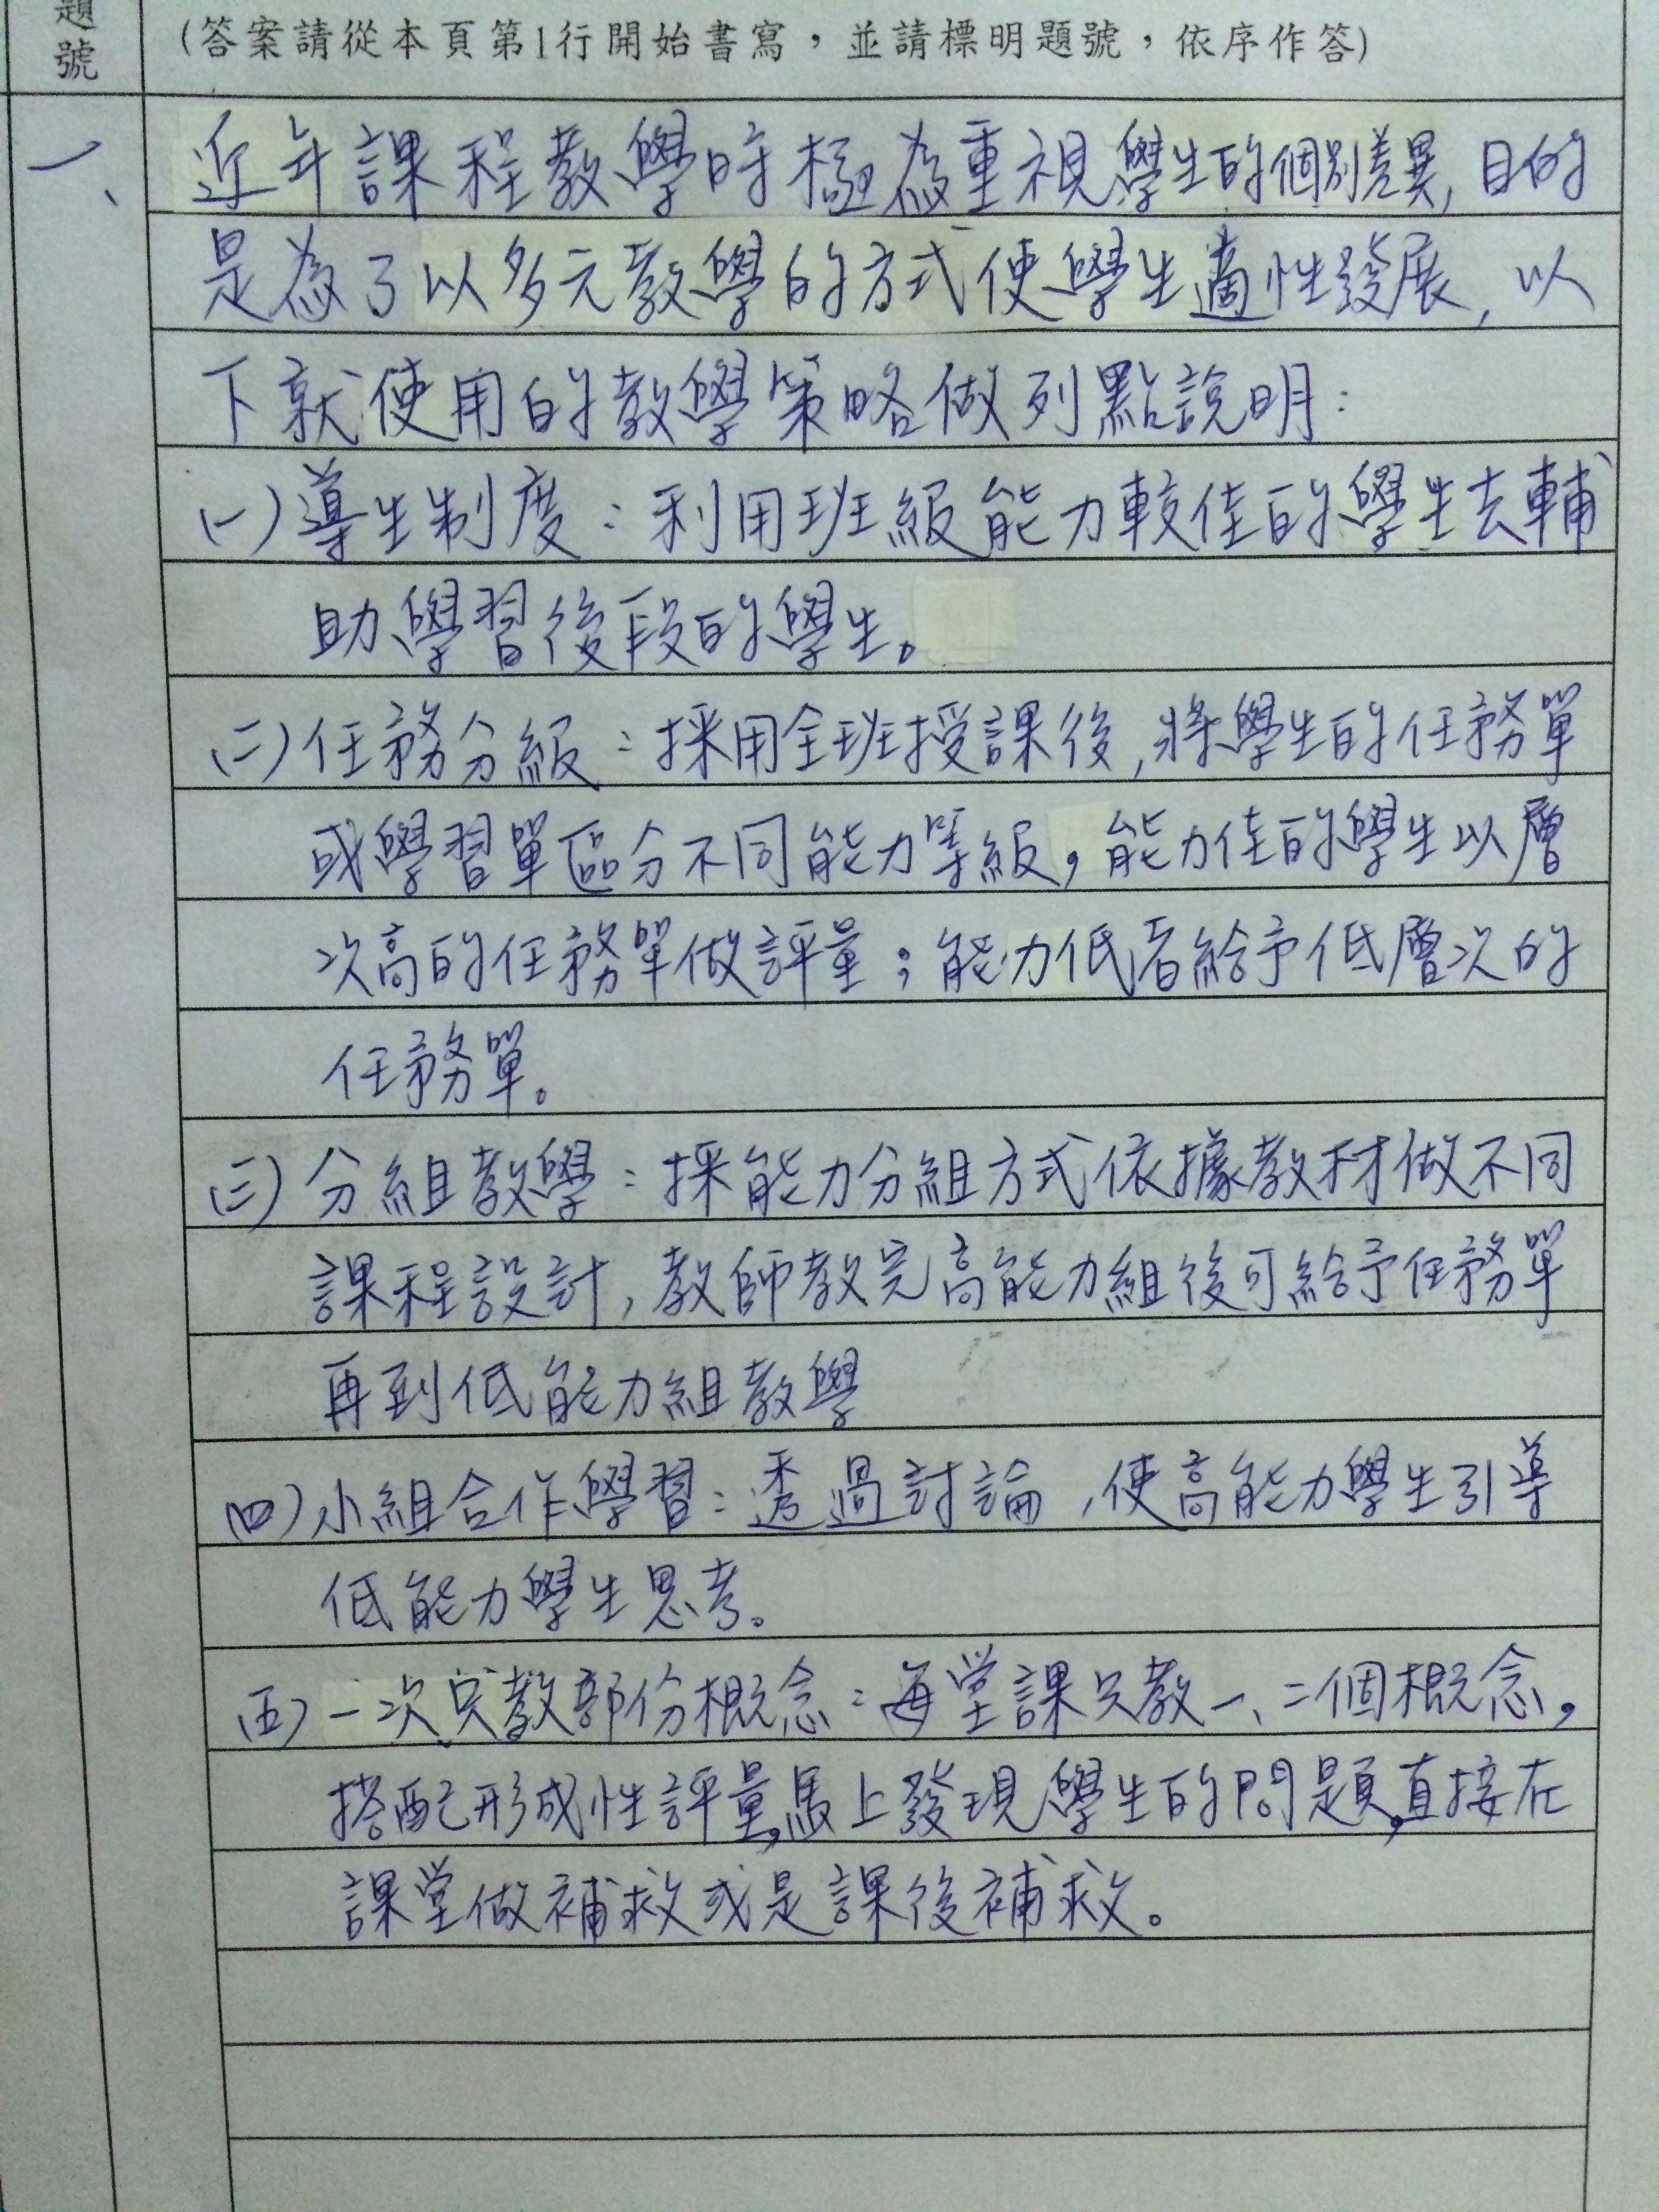 題號
(答案請從本頁第1行開始書寫，並請標明題號，依序作答)
一、
近年課程教學時極為重視學生的個別差異,目的
是為了以多元教學的方式使學生適性發展,以
下就使用的教學策略做列點說明:
(一)導生制度:利用班級能力較佳的學生去輔
助學習後段的學生。
(二)任務分級:採用全班授課後,將學生的任務單
或學習單區分不同能力等級,能力佳的學生以層
次高的任務單做評量;能力低者給予低層次的
任務單。
(三)分組教學:採能力分組方式依據教材做不同
課程設計,教師教完高能力組後可給予任務單
再到低能力組教學
(四)小組合作學習:透過討論,使高能力學生引導
低能力學生思考。
(五)一次只教部份概念:每堂課只教一、二個概念,
搭配形成性評量,馬上發現學生的問題,直接在
課堂做補救或是課後補救。